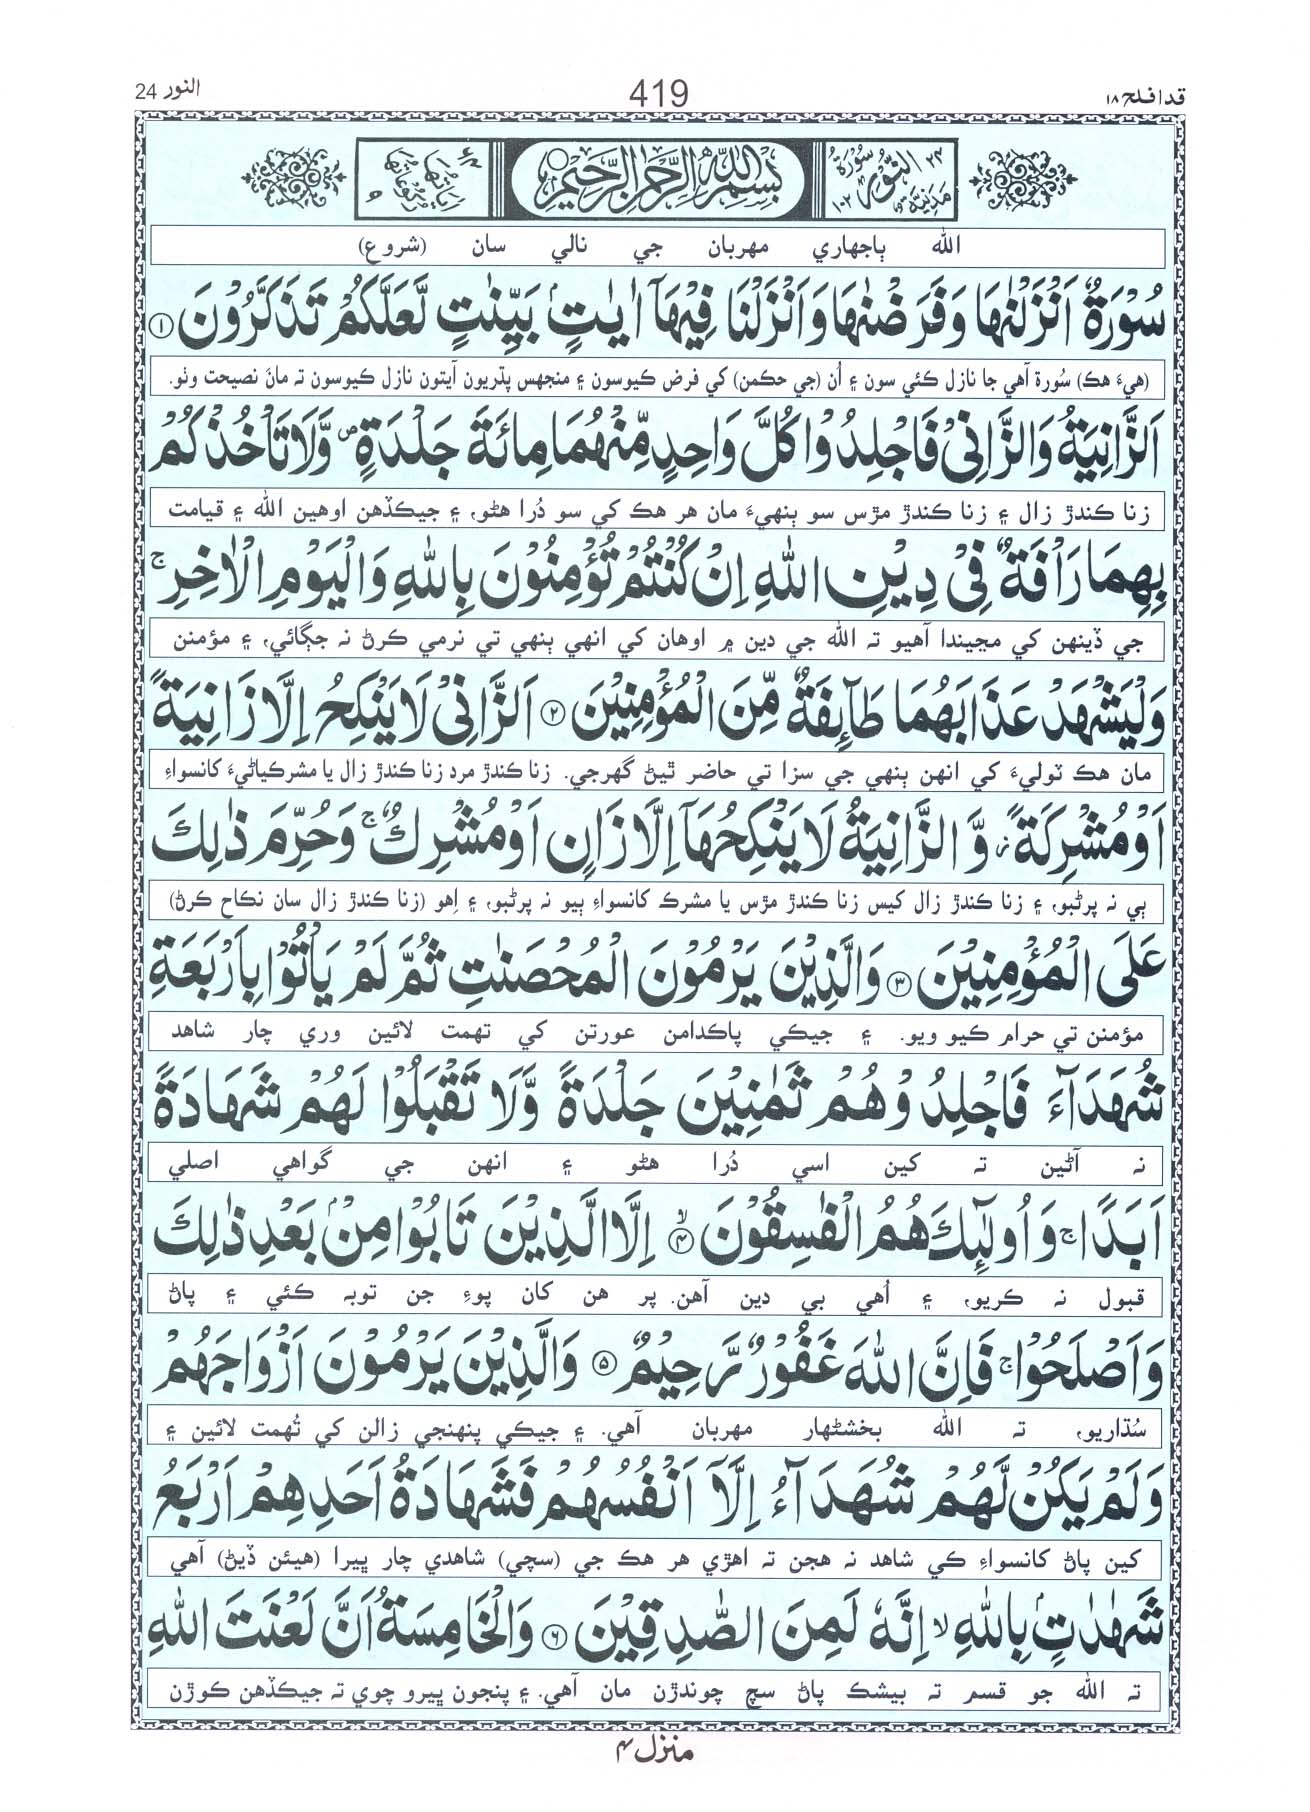 قد افلح ١٨
419
النور 24
سُوْرَةُ النُّوْرِ مَدَنِيَّةٌ
بِسْمِ اللّٰهِ الرَّحْمٰنِ الرَّحِيْمِ
اٰيَاتُهَا ٦٤ رُكُوْعَاتُهَا ٩
الله ٻاجهاري مهربان جي نالي سان (شروع)
سُوْرَةٌ اَنْزَلْنٰهَا وَفَرَضْنٰهَا وَاَنْزَلْنَا فِيْهَآ اٰيٰتٍۭ بَيِّنٰتٍ لَّعَلَّكُمْ تَذَكَّرُوْنَ ۝١
(هيءَ هڪ) سُورة آهي جا نازل ڪئي سون ۽ اُن (جي حڪمن) کي فرض ڪيوسون ۽ منجهس پڌريون آيتون نازل ڪيوسون تہ مانَ نصيحت وٺو.
اَلزَّانِيَةُ وَالزَّانِيْ فَاجْلِدُوْا كُلَّ وَاحِدٍ مِّنْهُمَا مِائَةَ جَلْدَةٍ ۖ وَّلَا تَاْخُذْكُمْ
زنا ڪندڙ زال ۽ زنا ڪندڙ مڙس سو ٻنهيءَ مان هر هڪ کي سو دُرا هڻو، ۽ جيڪڏهن اوهين الله ۽ قيامت
بِهِمَا رَاْفَةٌ فِيْ دِيْنِ اللّٰهِ اِنْ كُنْتُمْ تُؤْمِنُوْنَ بِاللّٰهِ وَالْيَوْمِ الْاٰخِرِ ۚ
جي ڏينهن کي مڃيندا آهيو تہ الله جي دين ۾ اوهان کي انهي ٻنهي تي نرمي ڪرڻ نہ جڳائي، ۽ مؤمنن
وَلْيَشْهَدْ عَذَابَهُمَا طَآئِفَةٌ مِّنَ الْمُؤْمِنِيْنَ ۝٢ اَلزَّانِيْ لَا يَنْكِحُ اِلَّا زَانِيَةً
مان هڪ ٽوليءَ کي انهن ٻنهي جي سزا تي حاضر ٿيڻ گهرجي. زنا ڪندڙ مرد زنا ڪندڙ زال يا مشرڪياڻيءَ کانسواءِ
اَوْ مُشْرِكَةً ؗ وَّالزَّانِيَةُ لَا يَنْكِحُهَآ اِلَّا زَانٍ اَوْ مُشْرِكٌ ۚ وَحُرِّمَ ذٰلِكَ
ٻي نہ پرڻبو، ۽ زنا ڪندڙ زال کيس زنا ڪندڙ مڙس يا مشرڪ کانسواءِ ٻيو نہ پرڻبو، ۽ اِهو (زنا ڪندڙ زال سان نڪاح ڪرڻ)
عَلَى الْمُؤْمِنِيْنَ ۝٣ وَالَّذِيْنَ يَرْمُوْنَ الْمُحْصَنٰتِ ثُمَّ لَمْ يَاْتُوْا بِاَرْبَعَةِ
مؤمنن تي حرام ڪيو ويو. ۽ جيڪي پاڪدامن عورتن کي تهمت لائين وري چار شاهد
شُهَدَآءَ فَاجْلِدُوْهُمْ ثَمٰنِيْنَ جَلْدَةً وَّلَا تَقْبَلُوْا لَهُمْ شَهَادَةً
نہ آڻين تہ کين اسي دُرا هڻو ۽ انهن جي گواهي اصلي
اَبَدًا ۚ وَاُولٰٓئِكَ هُمُ الْفٰسِقُوْنَ ۝٤ۙ اِلَّا الَّذِيْنَ تَابُوْا مِنْۢ بَعْدِ ذٰلِكَ
قبول نہ ڪريو، ۽ اُهي بي دين آهن. پر هن کان پوءِ جن توبہ ڪئي ۽ پاڻ
وَاَصْلَحُوْا ۚ فَاِنَّ اللّٰهَ غَفُوْرٌ رَّحِيْمٌ ۝٥ وَالَّذِيْنَ يَرْمُوْنَ اَزْوَاجَهُمْ
سُڌاريو، تہ الله بخشڻهار مهربان آهي. ۽ جيڪي پنهنجي زالن کي تُهمت لائين ۽
وَلَمْ يَكُنْ لَّهُمْ شُهَدَآءُ اِلَّآ اَنْفُسُهُمْ فَشَهَادَةُ اَحَدِهِمْ اَرْبَعُ
کين پاڻ کانسواءِ ڪي شاهد نہ هجن تہ اهڙي هر هڪ جي (سچي) شاهدي چار ڀيرا (هيئن ڏيڻ) آهي
شَهٰدٰتٍۭ بِاللّٰهِ ۙ اِنَّهٗ لَمِنَ الصّٰدِقِيْنَ ۝٦ وَالْخَامِسَةُ اَنَّ لَعْنَتَ اللّٰهِ
تہ الله جو قسم تہ بيشڪ پاڻ سچ چوندڙن مان آهي. ۽ پنجون ڀيرو چوي تہ جيڪڏهن ڪوڙن
منزل ٤